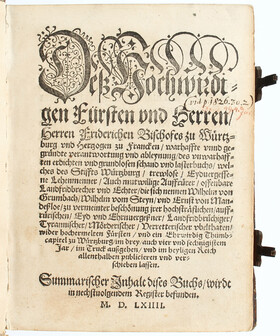 Deß Hochwirdi-
gen Fürsten vnd Herren/
Herren Friderichen Bischofes zu Würtz-
burg vnd Hertzogen zu Francken/ warhaffte vnnd ge-
gründte verantwortung vnd ableynung/ des vnwarhaff-
ten erdichten vnd grundlosen schand vnd lasterbuchs/ wel-
ches des Stiffts Würtzburg/ trewlose/ Eydvergess-
ne Lehenmenner/ Auch mutwillige Auffrürer/ offenbare
Landfridbrecher vnd Echter/ die sich nennen Wilhelm von
Grumbach/ Wilhelm vom Steyn/ vnd Ernst von Man-
deßlos/ zu vermeinter beschönung jrer hochsträfflichen/ auff-
rürischen/ Eyd vnd Ehrnvergeßner/ Landfridbrüchiger/
Tyrannischer/ Mörderischer/ Verretherischer vbelthaten/
wider hochermelten Fürsten/ vnd ein Erwirdig Thumb-
capitel zu Würtzburg im drey auch vier vnd sechtzigistem
Jar/ im Truck außgehen/ vnd im heyligen Reich
allenthalben publicieren vnd ver-
schieben lassen.
Summarischer Inhalt dises Buchs/ wirdt
in nechstvolgendem Register befunden.
M. D. LXIIII.